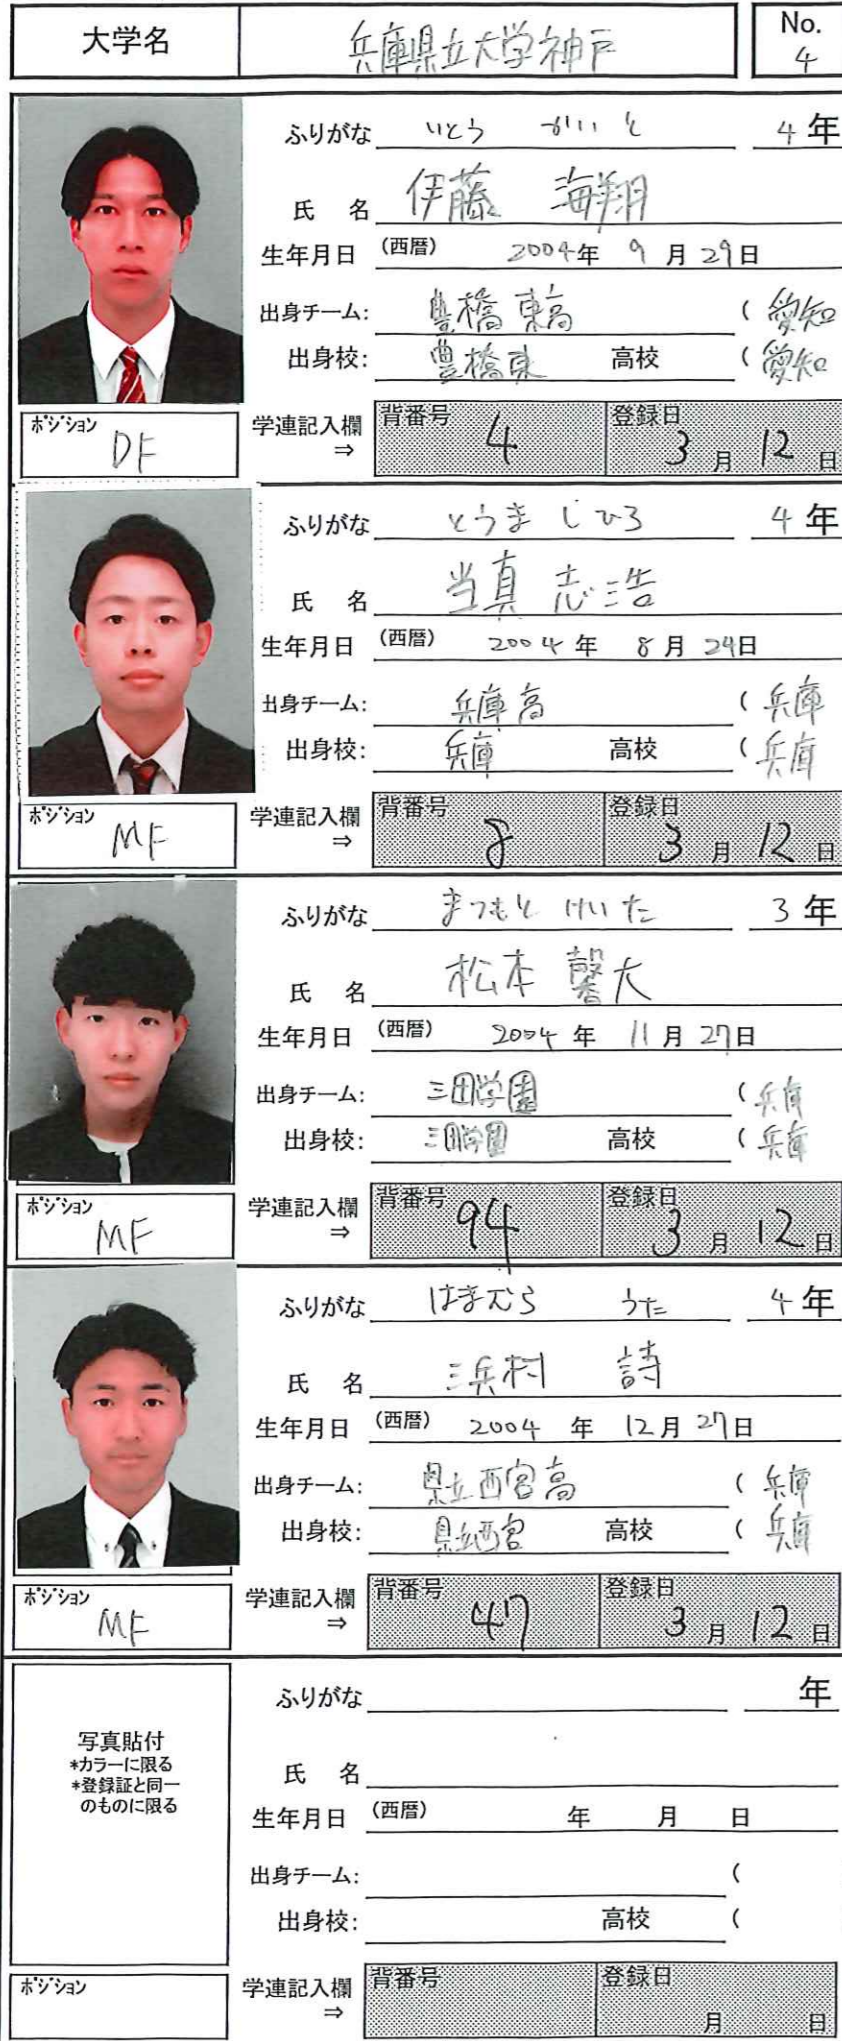 大学名 兵庫県立大学神戸 No. 4
ふりがな いとう かいと 4年
氏 名 伊藤 海翔
生年月日 (西暦) 2004年 9月29日
出身チーム: 豊橋東高 (愛知
出身校: 豊橋東 高校 (愛知
ポジション DF 学連記入欄⇒ 背番号 4 登録日 3月12日
ふりがな とうま しひろ 4年
氏 名 当真 志浩
生年月日 (西暦) 2004年 8月24日
出身チーム: 兵庫高 (兵庫
出身校: 兵庫 高校 (兵庫
ポジション MF 学連記入欄⇒ 背番号 8 登録日 3月12日
ふりがな まつもと けいた 3年
氏 名 松本 馨大
生年月日 (西暦) 2004年 11月27日
出身チーム: 三田学園 (兵庫
出身校: 三田学園 高校 (兵庫
ポジション MF 学連記入欄⇒ 背番号 94 登録日 3月12日
ふりがな はまむら うた 4年
氏 名 浜村 詩
生年月日 (西暦) 2004年 12月27日
出身チーム: 県立西宮高 (兵庫
出身校: 県立西宮 高校 (兵庫
ポジション MF 学連記入欄⇒ 背番号 47 登録日 3月12日
写真貼付
*カラーに限る
*登録証と同一
のものに限る
ふりがな 年
氏 名
生年月日 (西暦) 年 月 日
出身チーム: (
出身校: 高校 (
ポジション 学連記入欄⇒ 背番号 登録日 月 日